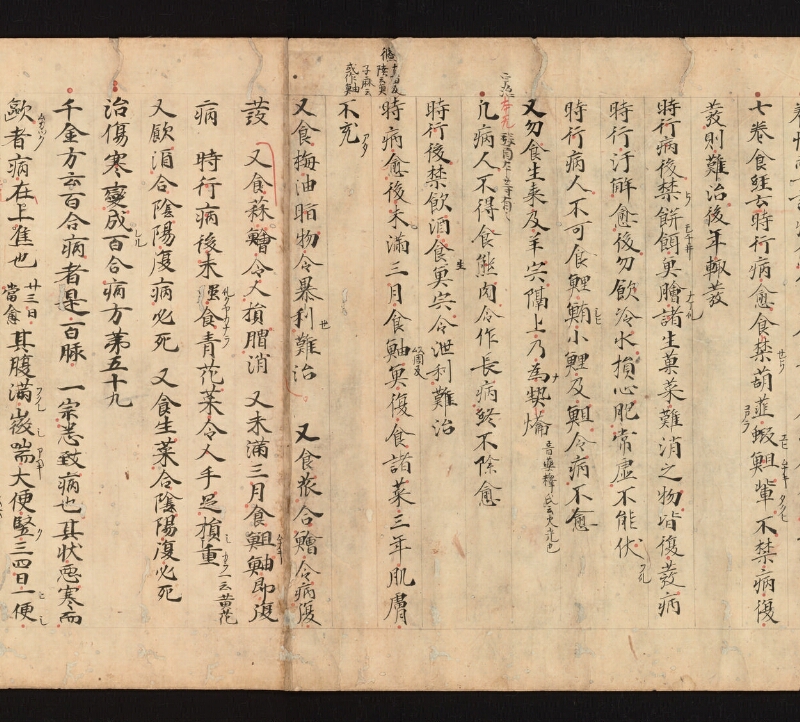 七卷食經云時行病愈食禁葫韮蝦䱉輩不禁病復
發則難治後年輙發
時行病後禁餅餇魚膾諸生菓菜難消之物皆復發病
時行汙解愈後勿飲冷水損心肥常虚不能伏
時行病人不可食鯉鮪小鯉及䱉令病不愈
又勿食生棗及羊宍膈上乃為㷟爚
音藥釋氏云火光也
凡病人不得食熊肉令作長病終不除愈
時行後禁飲酒食生魚宍令泄利難治
時病愈後未滿三月食鮋魚復食諸菜三年肌膚
不充
又食梅油脂物令暴利難治 又食葱合鱠令病復
發 又食蒜鱠令人損胃消 又未滿三月食䱉鮋即復
病 時行病後未強食青花菜令人手足損重
一云黄花
又飲酒合陰陽復病必死 又食生菜合陰陽復必死
治傷寒變成百合病方第五十九
千金方云百合病者是百脉一宗悉致病也其状惡寒而
歐者病在上焦也
廿三日當愈
其腹滿微喘大便堅三四日一便